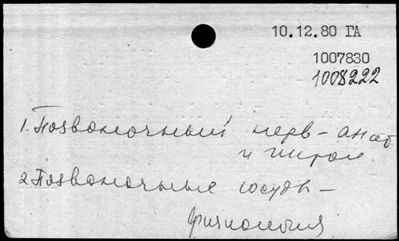 10.12.80 ГА
1007830
1008222
1. Позвоночный нерв - анат
и
2 Позвоночные сосуды -
физиология